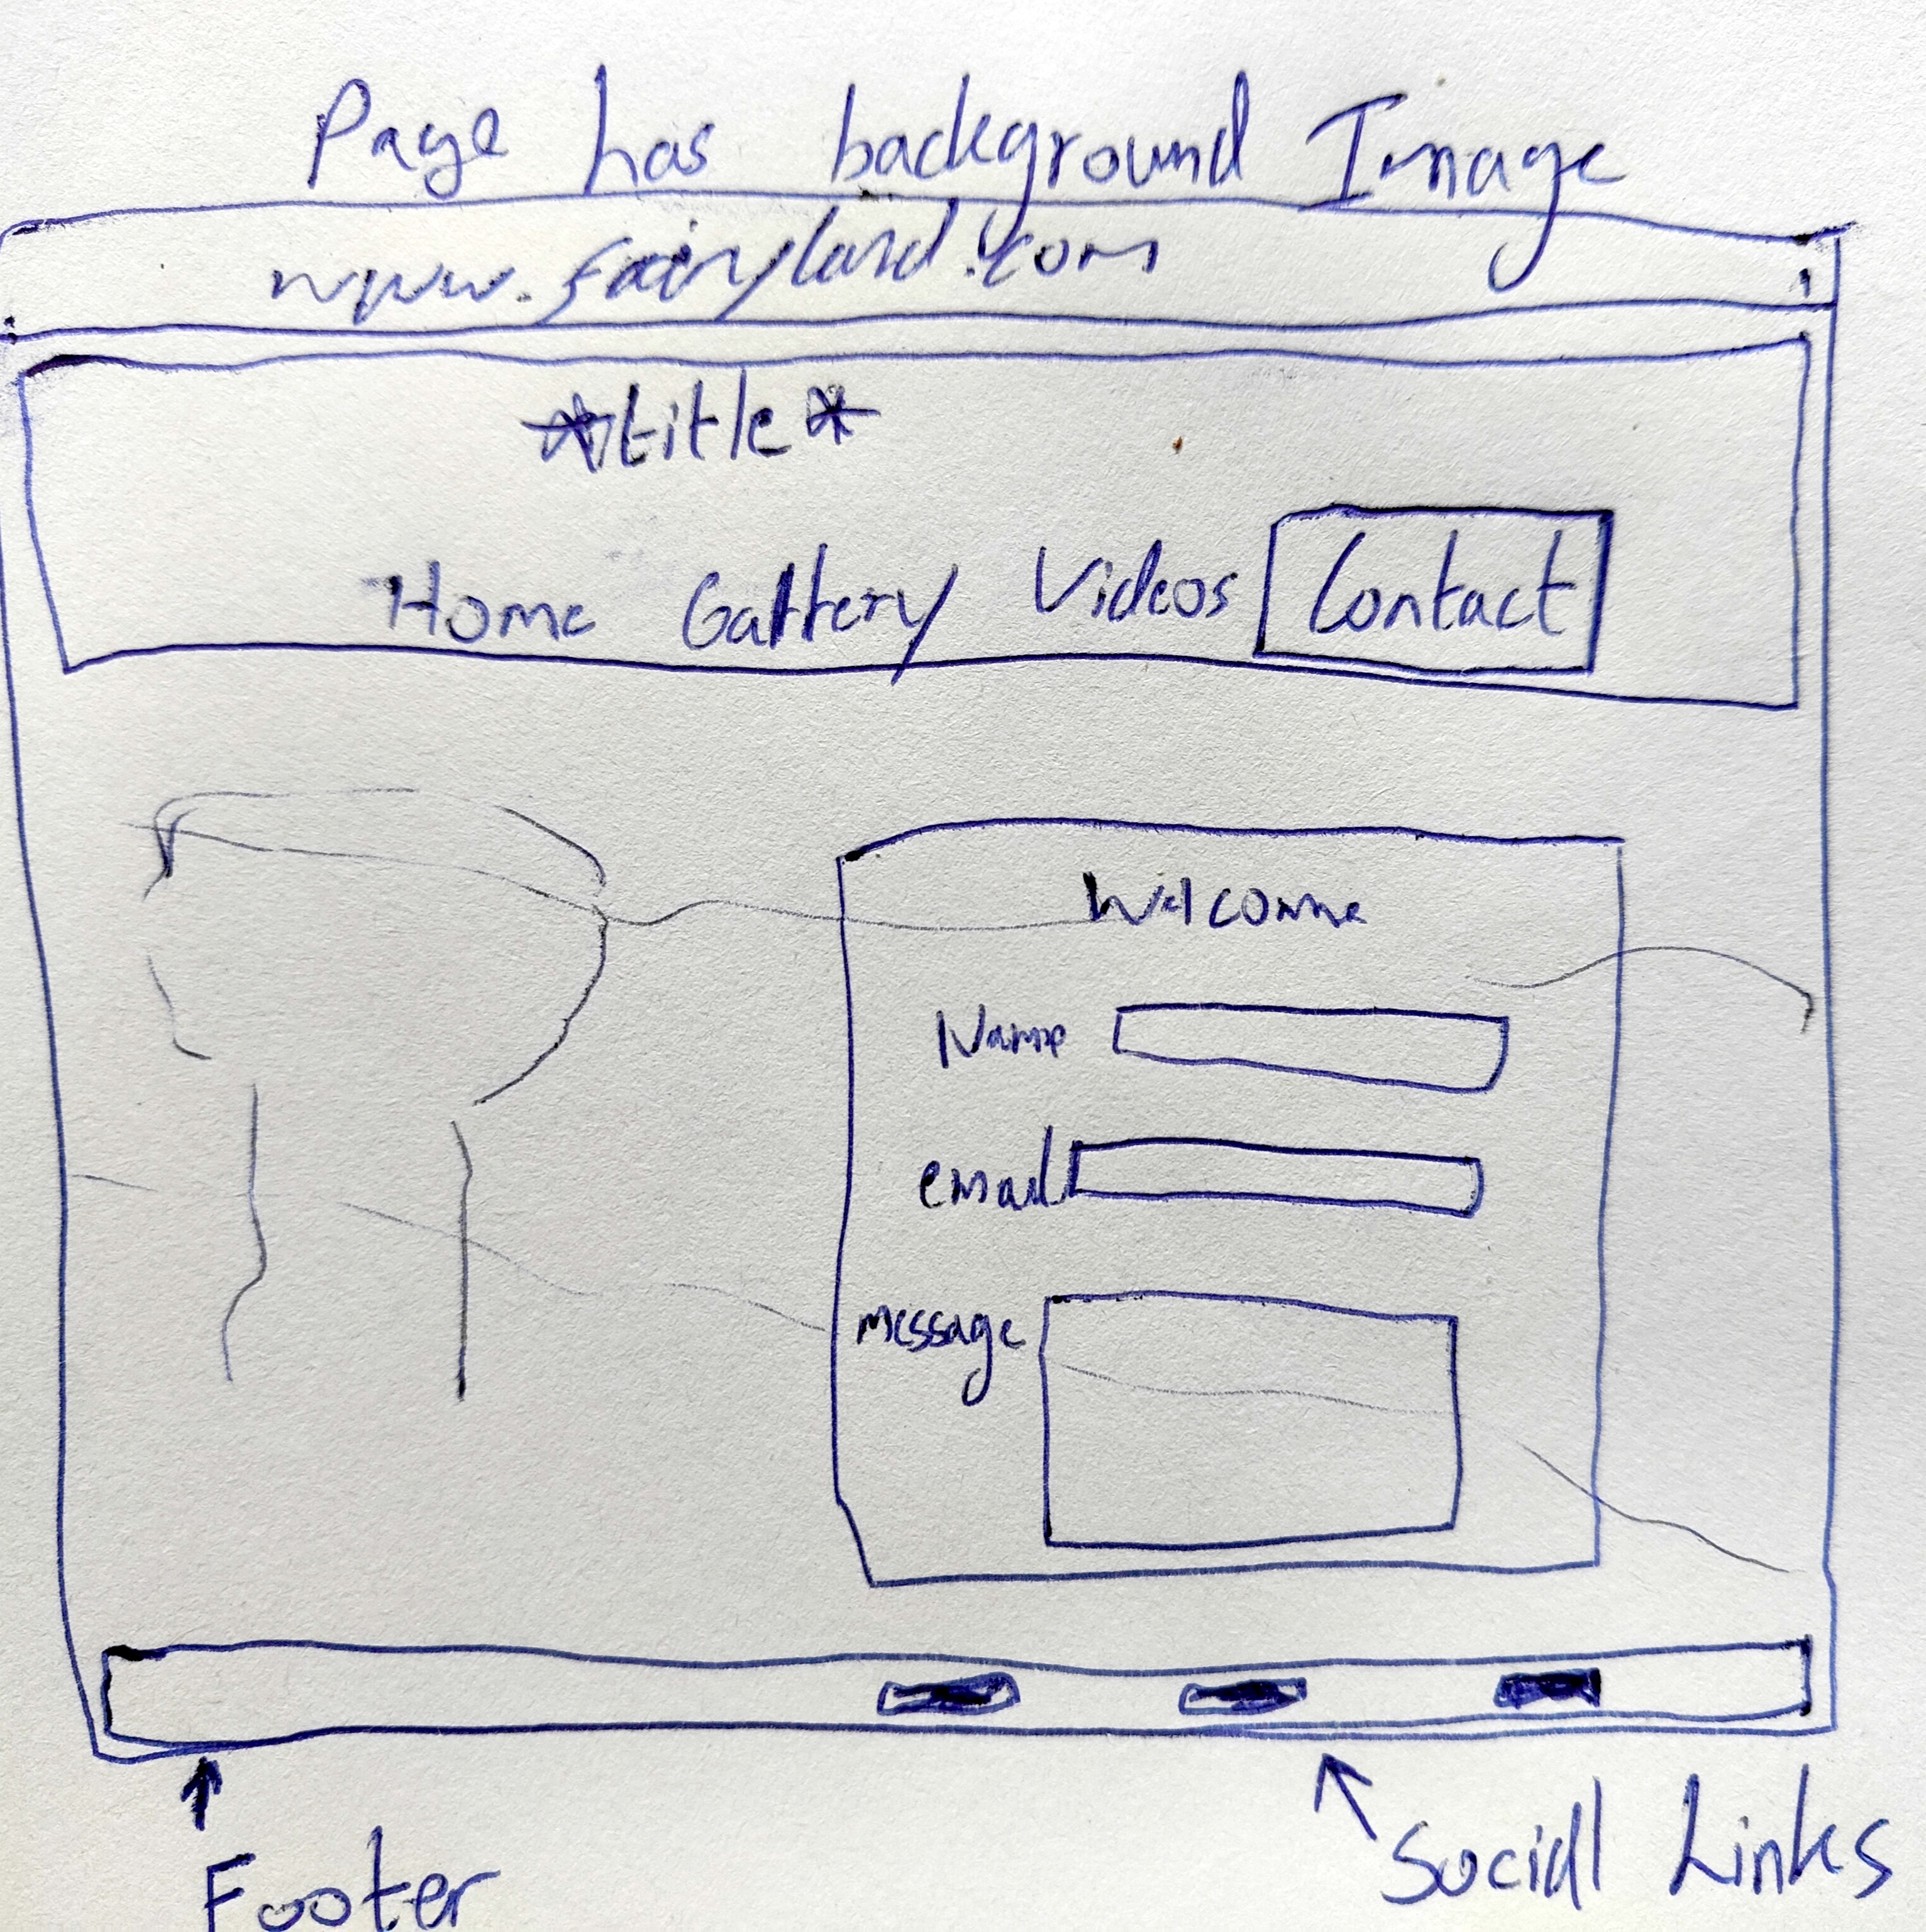 Page has background Image
www.fairyland.com
*title*
Home Gallery Videos Contact
Welcome
Name
email
message
Footer
Social Links